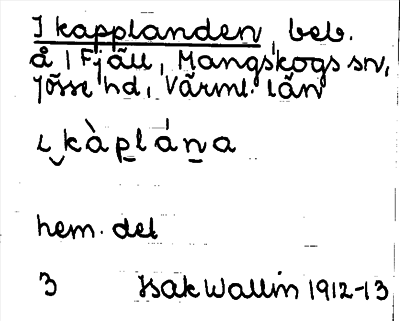 I kapplanden, beb.
å 1 Fjäll, Mangskogs sn,
Jösse hd, Värml. län
ɩ kàpláṇa
hem. del
3 Isak Wallin 1912-13